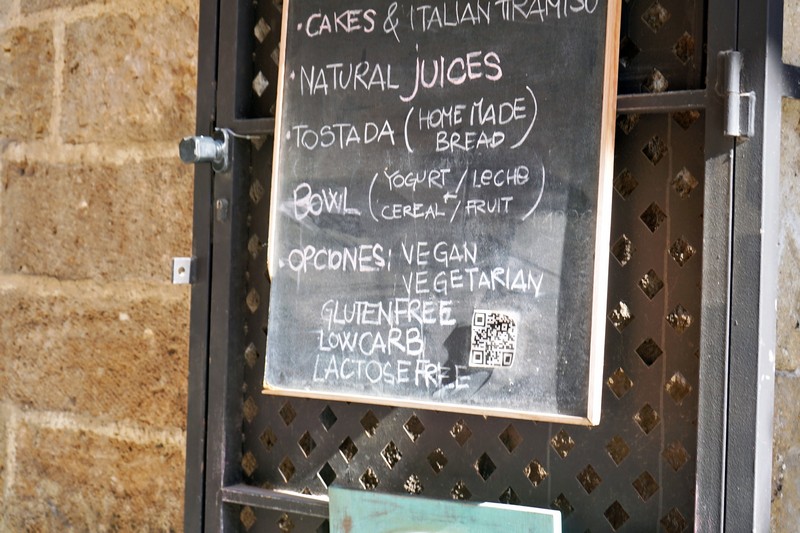 · CAKES & ITALIAN TIRAMISU
· NATURAL JUICES
· TOSTADA (HOME MADE BREAD)
BOWL (YOGURT / LECHE
CEREAL + / FRUIT)
· OPCIONES: VEGAN
VEGETARIAN
GLUTENFREE
LOWCARB
LACTOSEFREE